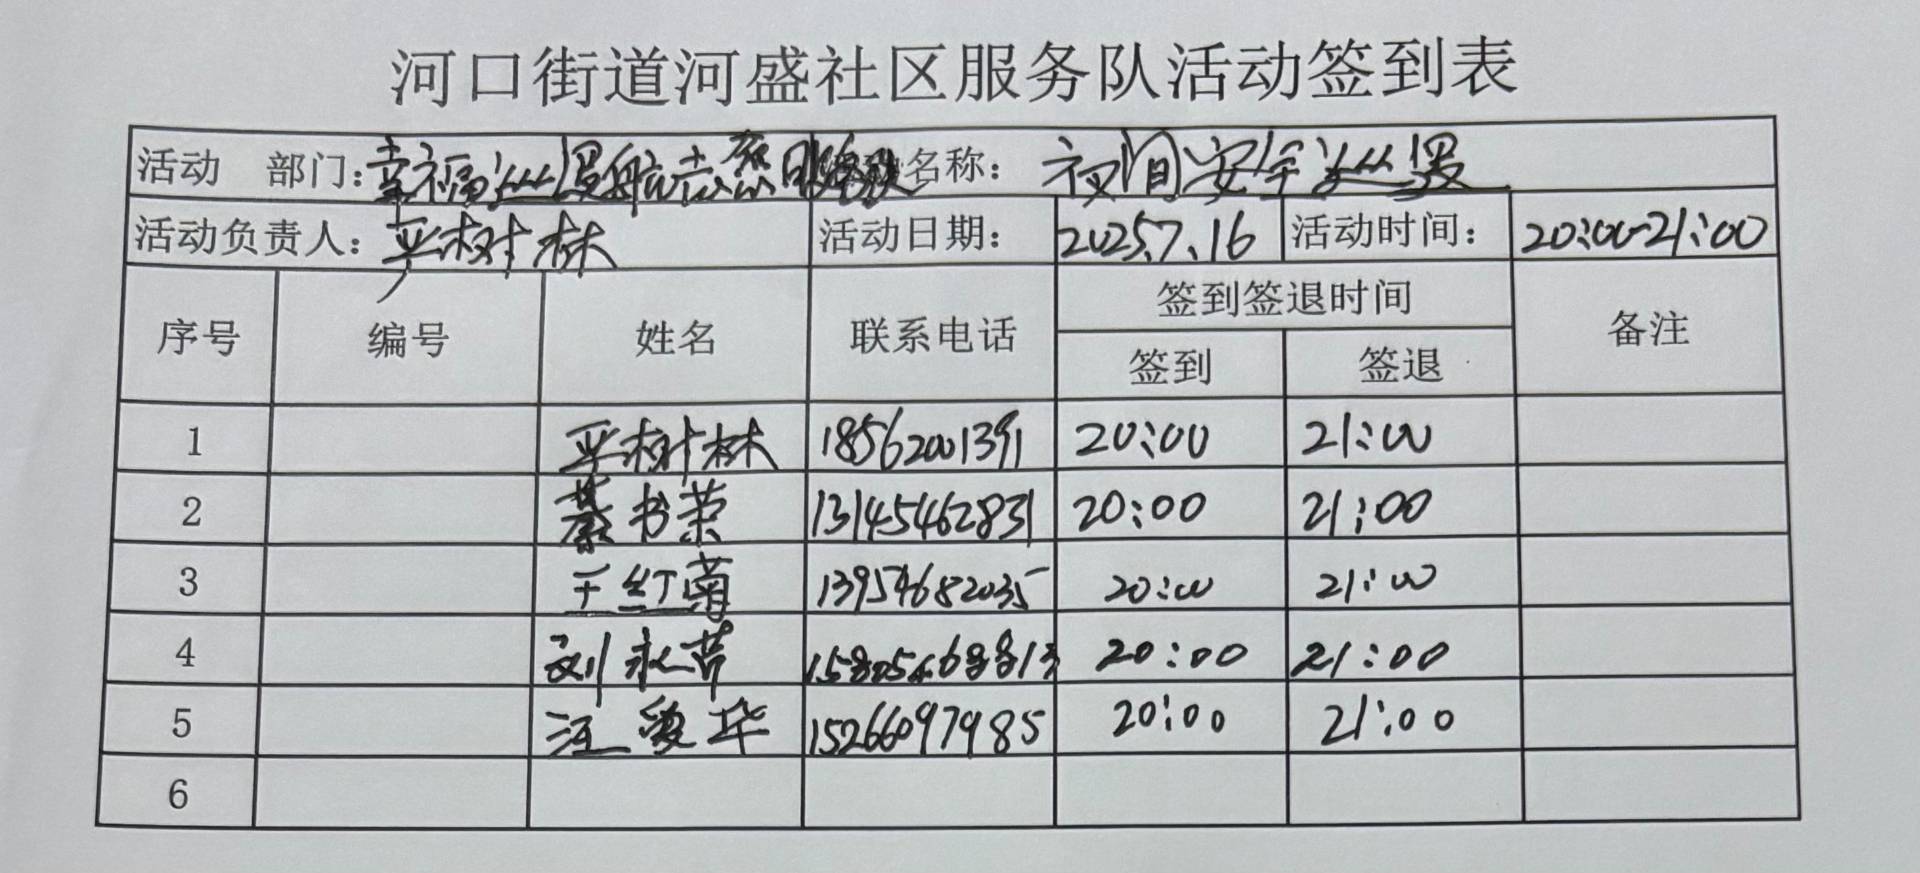 河口街道河盛社区服务队活动签到表
活动 部门：幸福巡逻航志愿服务队 名称：夜间安全巡逻
活动负责人：严树林 活动日期：2025.7.16 活动时间：20:00-21:00
序号 编号 姓名 联系电话 签到签退时间 备注
签到 签退
1 严树林 18562001391 20:00 21:00
2 綦书荣 13145462831 20:00 21:00
3 王红菊 13954682035 20:00 21:00
4 刘永苦 15805468813 20:00 21:00
5 汪爱华 15266097985 20:00 21:00
6